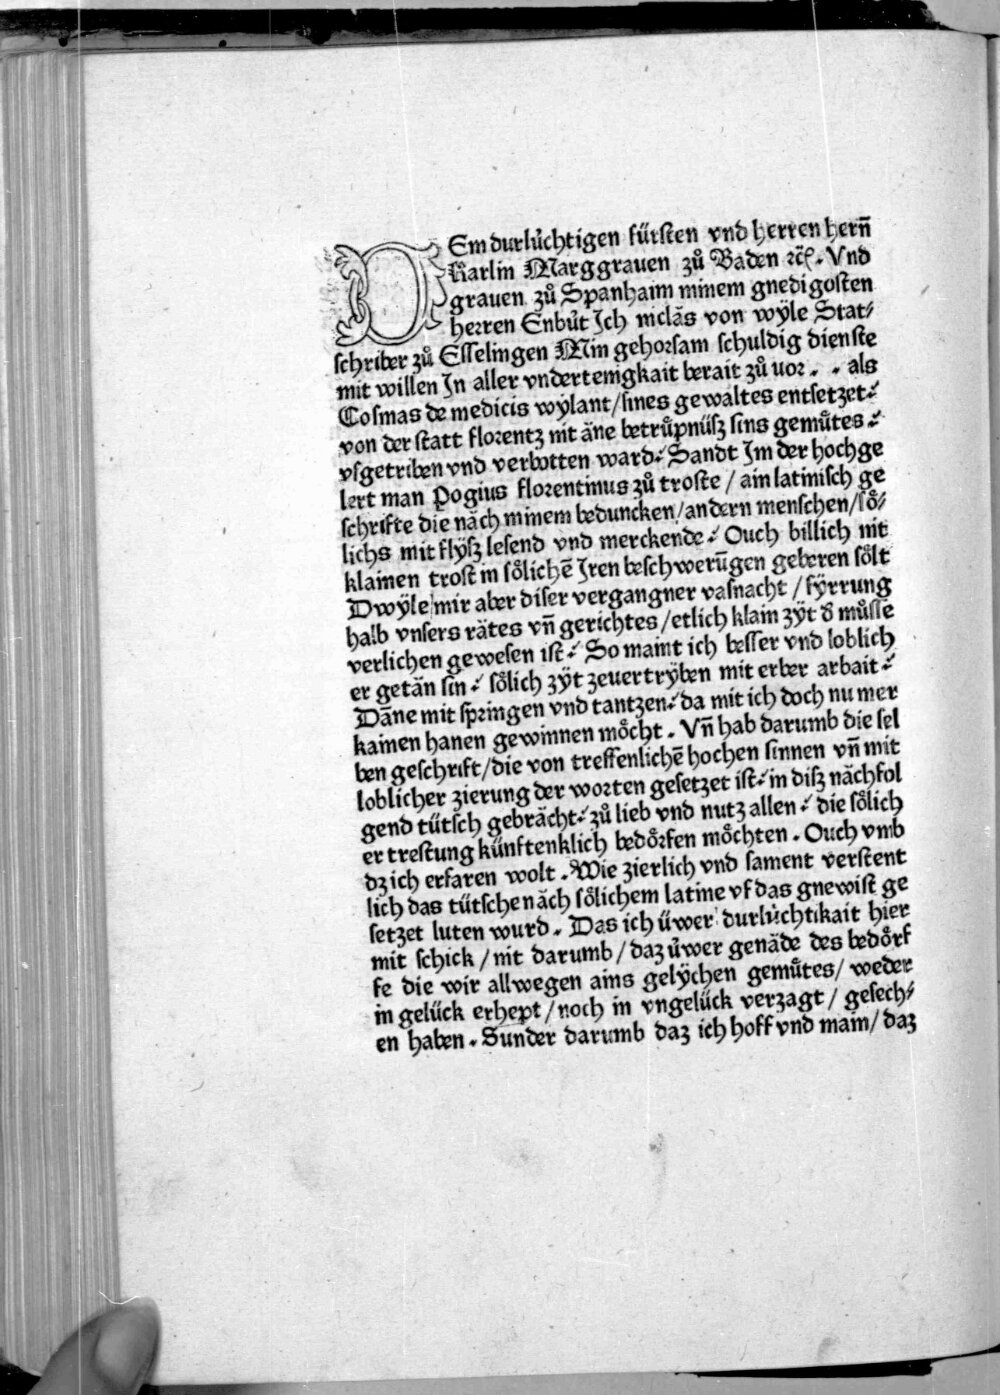 DEm durlúchtigen fürsten vnd herren hern̄
Karlin Marggrauen zů Baden ⁊c̄. Vnd
grauen zů Spanhaim minem gnedigosten
herren Enbút Ich niclăs von wÿle Stat⸗
schriber zů Esselingen Min gehorsam schuldig dienste
mit willen In aller vndertenigkait berait zů uor . . als
Cosmas de medicis wÿlant/sines gewaltes entsetzet⸗
von der statt florentz nit ăne betrůpnüsz sins gemůtes ⸗
vsgetriben vnd verbotten ward⸗ Sandt Im der hochge
lert man Pogius florentinus zů troste / ain latinisch ge
schrifte die năch minem beduncken/andern menschen/sŏ⸗
lichs mit flÿsz lesend vnd merckende⸗ Ouch billich nit
klainen trost in sŏlichē Iren beschwerūgen geberen sŏlt
Dwÿle mir aber diser vergangner vasnacht / fÿrrung
halb vnsers rătes vn̄ gerichtes /etlich klain zÿt d̓ můsse
verlichen gewesen ist⸗ So maint ich besser vnd loblich
er getăn sin⸗ sŏlich zÿt zeuertrÿben mit erber arbait⸗
Dāne mit springen vnd tantzen⸗ da mit ich doch nu mer
kainen hanen gewinnen mŏcht . Vn̄ hab darumb die sel
ben geschrift/die von treffenlichē hochen sinnen vn̄ mit
loblicher zierung der worten gesetzet ist⸗ in disz năchfol
gend tütsch gebrăcht⸗ zů lieb vnd nutz allen⸗ die sŏlich
er trestung künftenklich bedŏrfen mŏchten . Ouch vmb
dz ich erfaren wolt . Wie zierlich vnd sament verstent
lich das tütsche năch sŏlichem latine vf das gnewist ge
setzet luten wurd . Das ich üwer durlúchtikait hier
mit schick / nit darumb / daz úwer genăde des bedŏrf
fe die wir allwegen ains gelÿchen gemůtes / weder
in gelück erhept / noch in vngelück verzagt / gesech⸗
en haben . Sunder darumb daz ich hoff vnd main/ daz